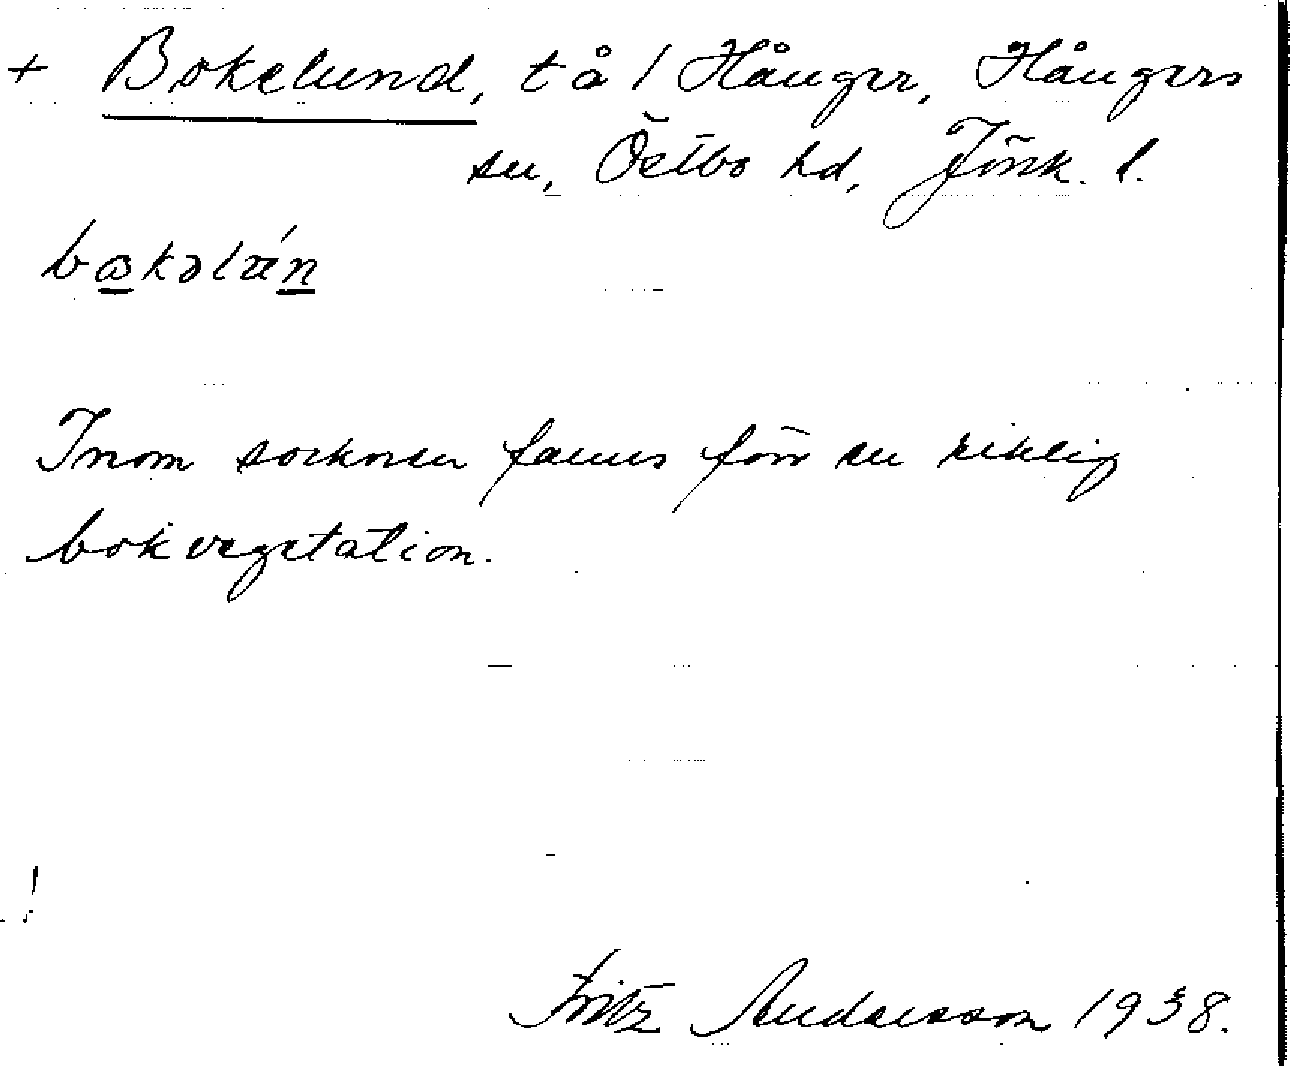 + Bokelund, tå / Hånger, Hångers
sn, Östbo hd, Jönk. l.
Inom socknen fanns förr en riklig
bokvegetation.
!
Fritz Andersson 1938.